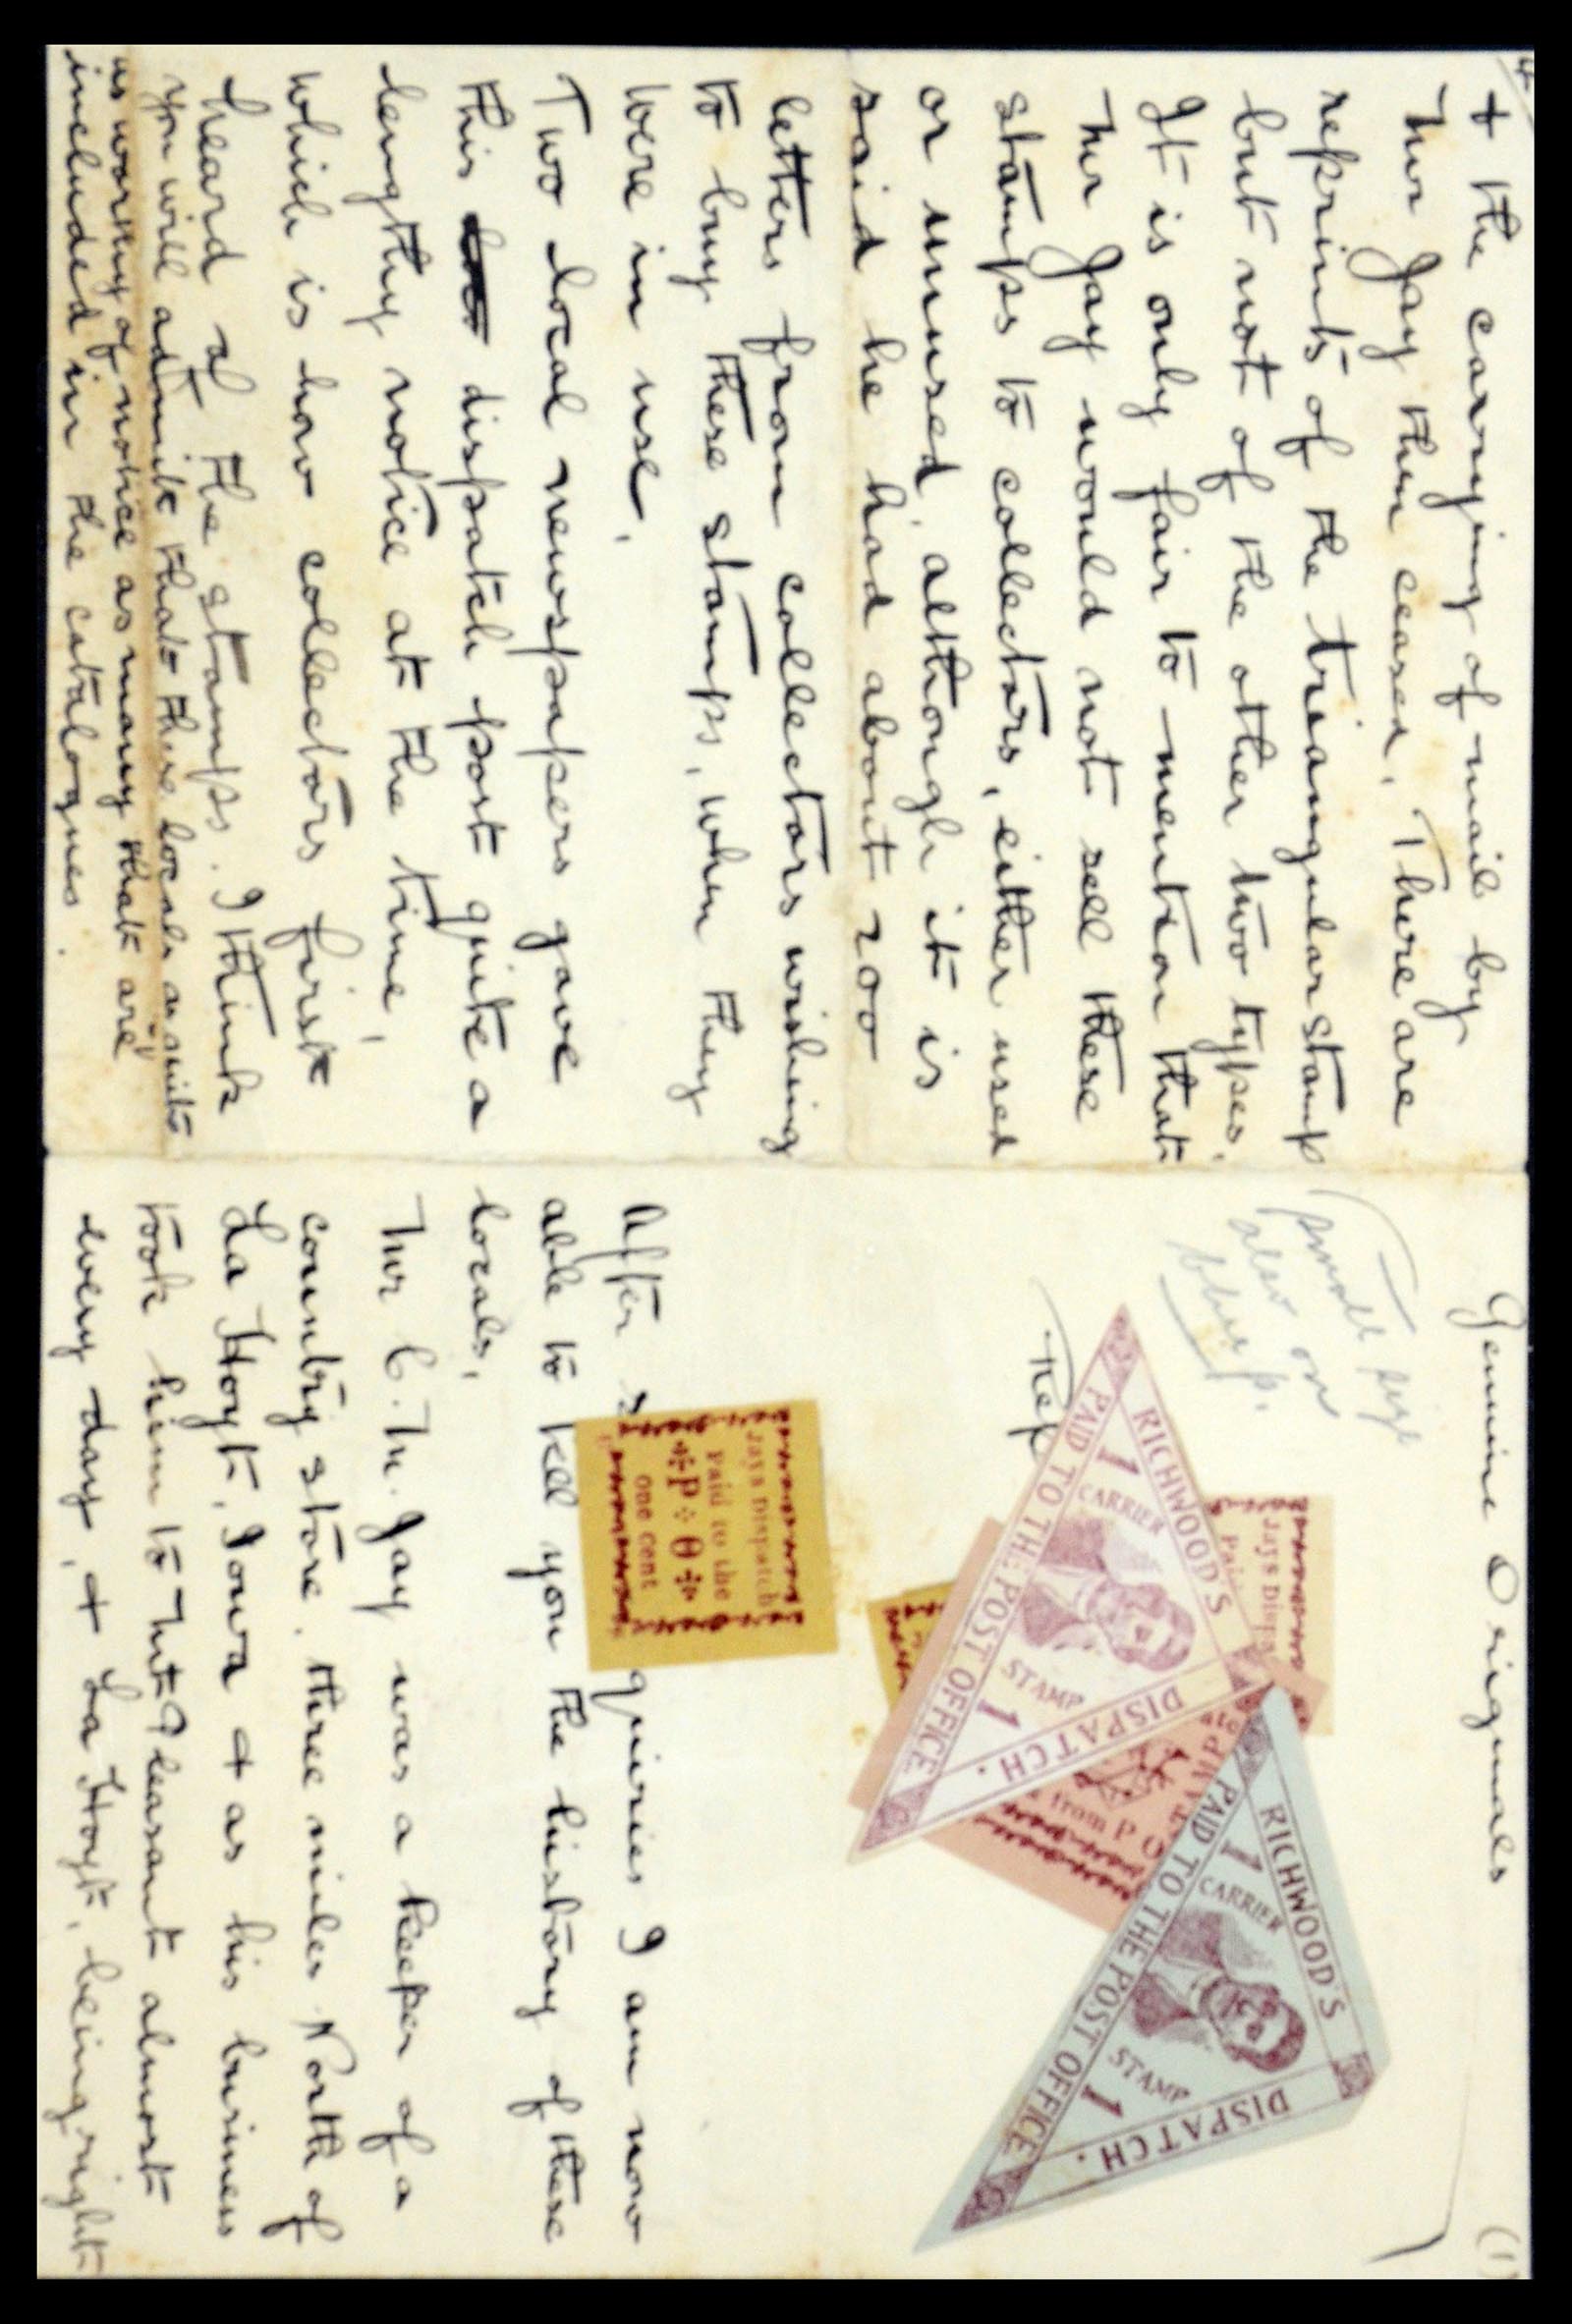 4
+ the carrying of mail by
Mr Jay then ceased. There are
reprints of the triangular stamp
but not of the other two types.
It is only fair to mention that
Mr Jay would not sell these
stamps to collectors, either used
or unused, although it is
said he had about 200
letters from collectors wishing
to buy these stamps, when they
were in use.
Two local newspapers gave
this dispatch post quite a
lengthy notice at the time,
which is how collectors first
heard of the stamps. I think
you will admit that these locals as quite
as worthy of notice as many that are
included in the catalogues.
Genuine Originals (1)
small size
also on
blue p.
Rep
Jays Dispa
Paid
RICHWOOD'S
DISPATCH.
PAID TO THE POST OFFICE
1 CARRIER
STAMP 1
from P O
STAMP
RICHWOOD'S
DISPATCH.
PAID TO THE POST OFFICE
1 CARRIER
STAMP 1
Jays Dispatch
Paid to the
P O
one cent
After quiries I am now
able to tell you the history of these
locals.
Mr C. M. Jay was a keeper of a
country store, three miles North of
La Hoyt, Iowa + as his business
took him to Mt Pleasant almost
every day, + La Hoyt, being right